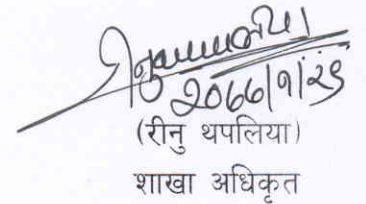 २०७७|१|२९
(रीनु थपलिया)
शाखा अधिकृत